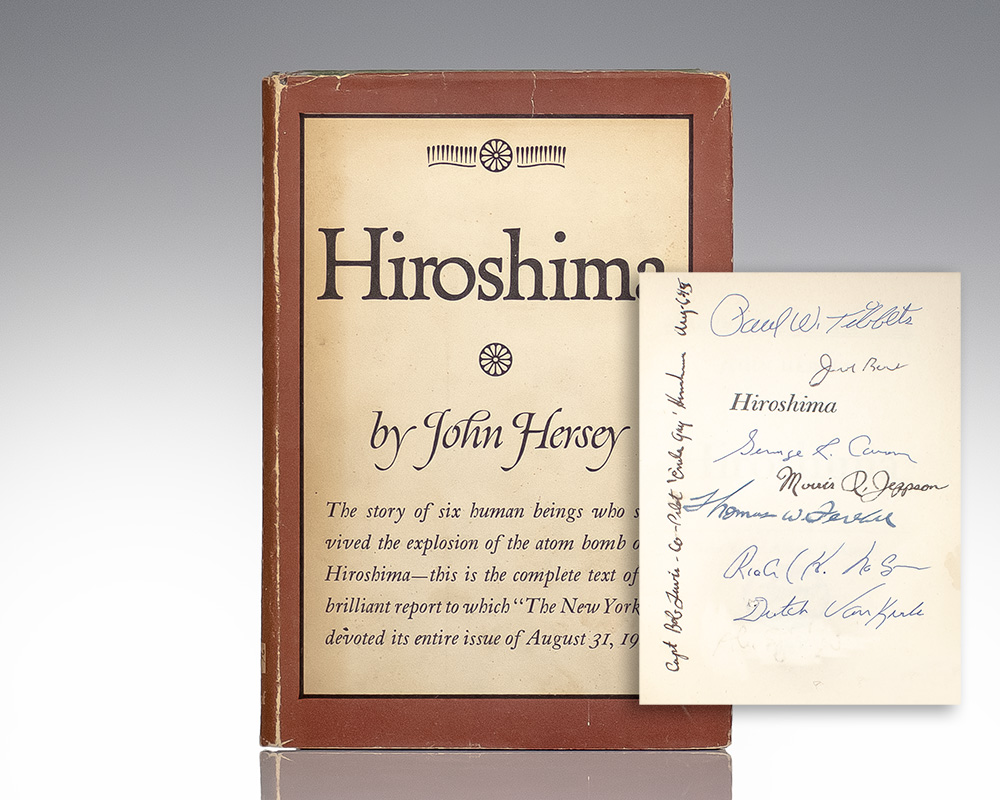 Hiroshima
by John Hersey
The story of six human beings who s
vived the explosion of the atom bomb o
Hiroshima—this is the complete text of
brilliant report to which "The New York
devoted its entire issue of August 31, 19
Paul W. Tibbets
Hiroshima
George R. Caron
Morris R. Jeppson
Thomas W. Ferebee
Richard K. Nelson
Dutch VanKirk
Capt Bob Lewis - Co-Pilot 'Enola Gay' Hiroshima Aug-6-45